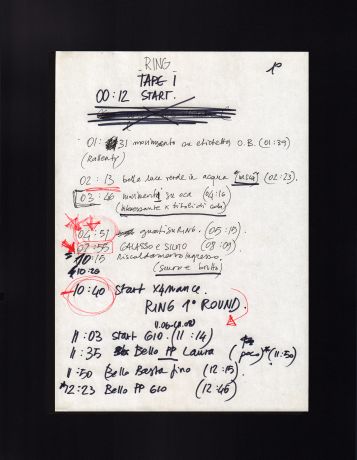 RING
TAPE 1
1°
00:12 START.
01: 31 movimento su etichetta O.B. (01:39)
(Rallenty)
02:13 bella luce verde in acqua "vasca" (02:23)
03:46 movimento su oca (04:16)
(interessante x titoli di coda)
04:51 guanti su RING. (05:15)
07:55 CALASSO e SILVIO (08:09)
10:15 Riscaldamento ingresso
10:26 (scuro e brutto)
10:40 Start x4mance.
RING 1° ROUND.
11:03 Start GIO. (11:14)
11:35 Bello PP Laura (poco) (11:50)
11:50 Bello Basta fino (12:15)
12:23 Bello PP GIO (12:46)